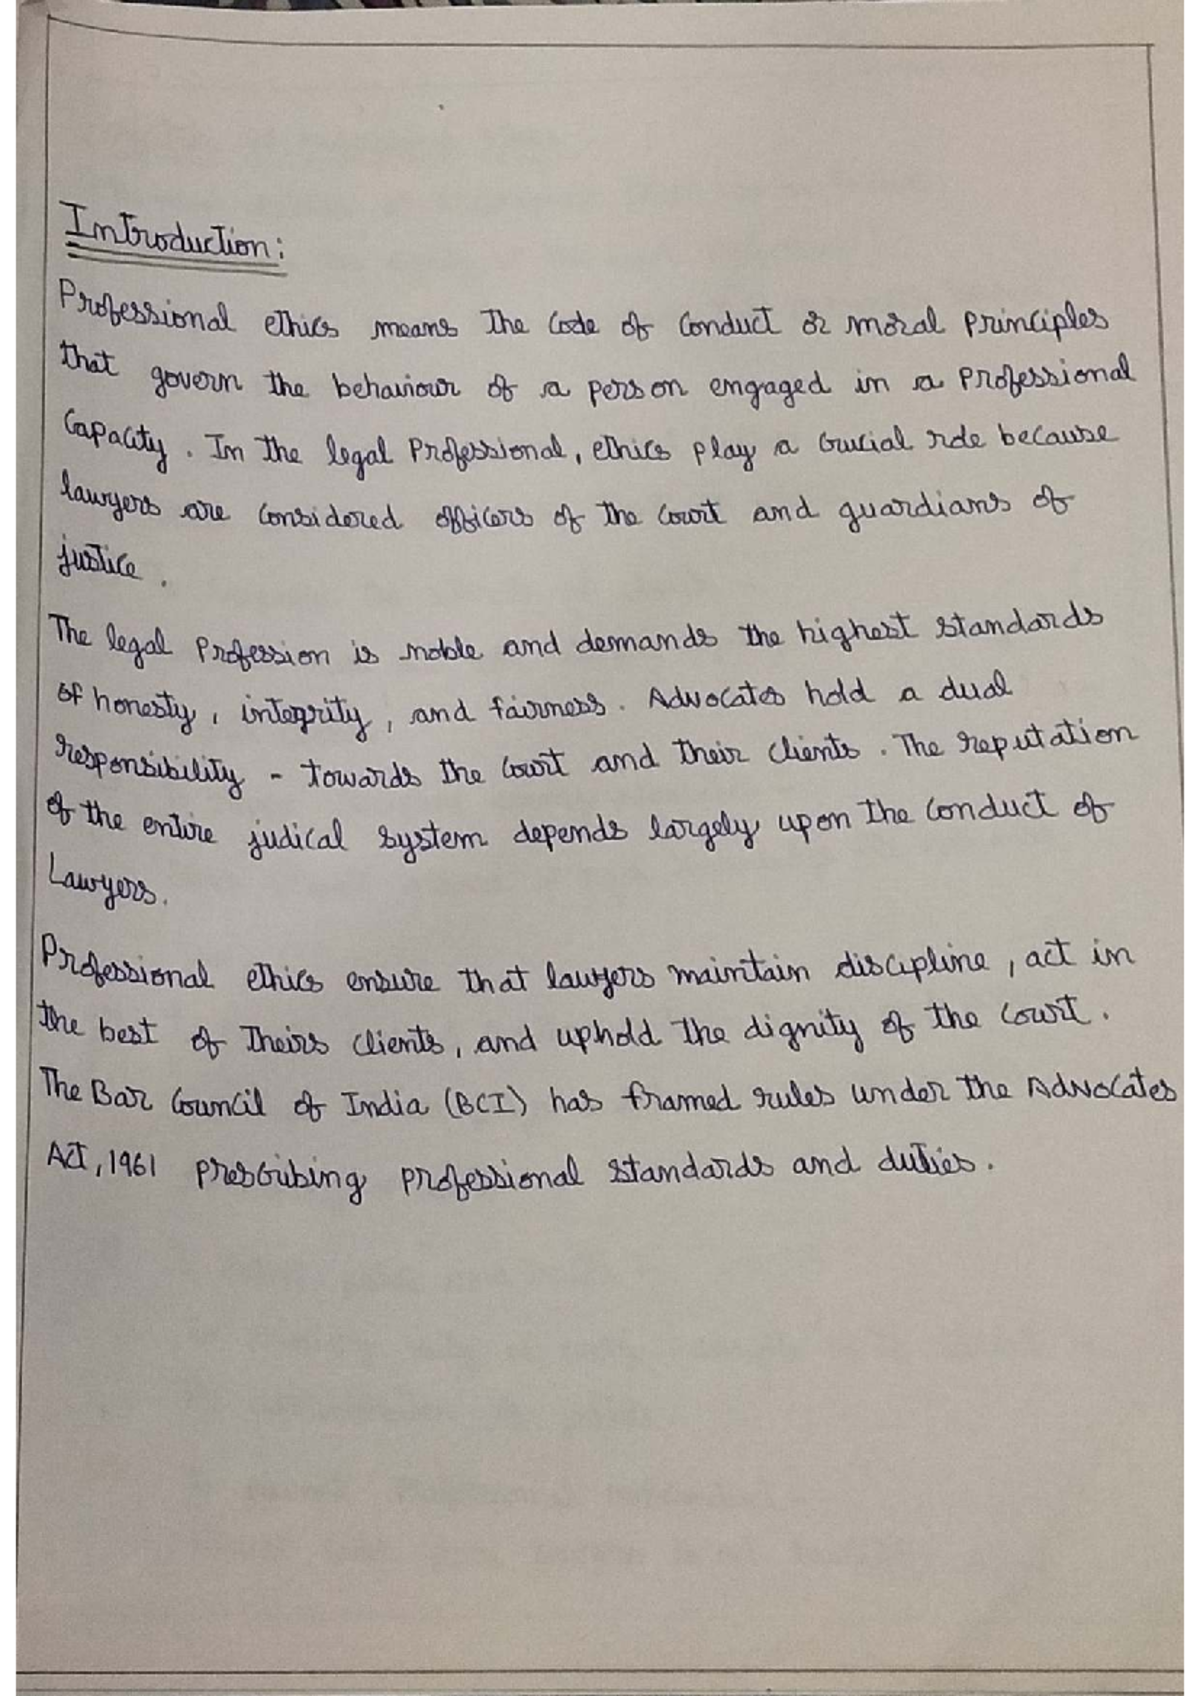 Introduction:
Professional ethics means the code of conduct or moral principles
that govern the behaviour of a person engaged in a professional
capacity. In the legal Professional, ethics play a crucial role because
lawyers are considered officers of the court and guardians of
justice.
The legal Profession is noble and demands the highest standards
of honesty, integrity, and fairness. Advocates hold a dual
responsibility - towards the court and their clients. The reputation
of the entire judical system depends largely upon the conduct of
Lawyers.
Professional ethics ensure that lawyers maintain discipline, act in
the best of theirs clients, and uphold the dignity of the court.
The Bar Council of India (BCI) has framed rules under the Advocates
Act, 1961 prescribing professional standards and duties.